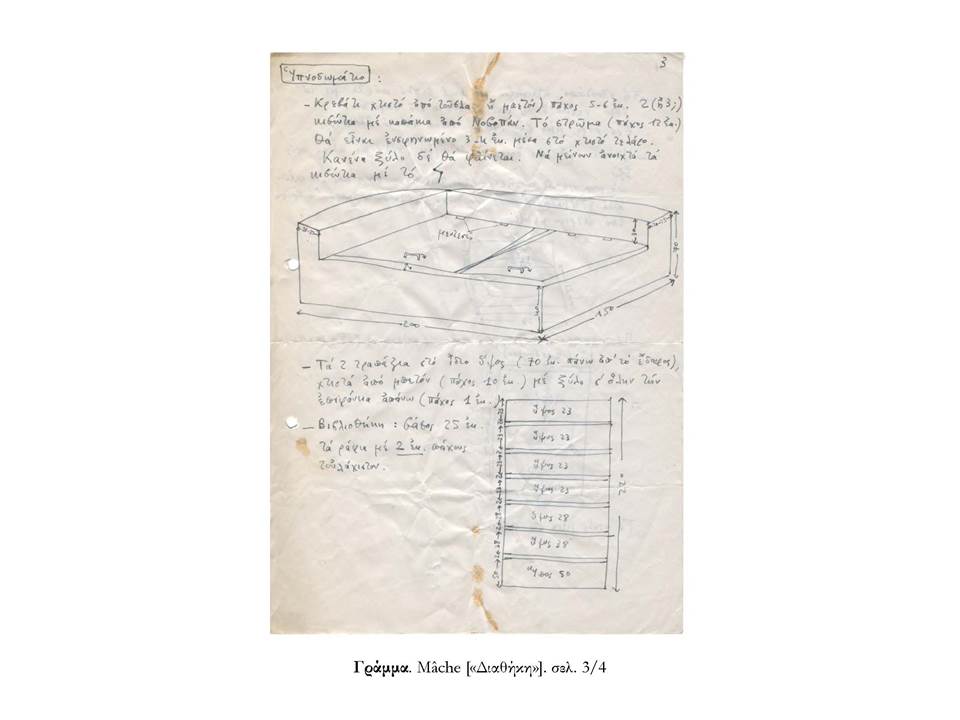 3
Ὑπνοδωμάτιο :
– Κρεβάτι χτιστό ἀπό τοῦβλα (ἤ μπετόν) πάχος 5-6 ἑκ. 2 (ἤ 3;)
κιβώτια με καπάκια ἀπό Νοβοπάν. Τό στρῶμα (πάχος 12 ἑκ.)
θά εἶναι ἐνσφηνωμένο 3-4 ἑκ. μέσα στό χτιστό τελάρο.
Κανένα ξύλο δέ θά φαίνεται. Νά μείνουν ἀνοιχτά τά
κιβώτια μέ τό
μεντεσέ
70
40
200
150
– Τά 2 τραπέζια στό ἴδιο ὕψος (70 ἑκ. πάνω ἀπ' τό ἔδαφος),
χτιστά ἀπό μπετόν (πάχος 10 ἑκ.) μέ ξύλο σ' ὅλην τήν
ἐπιφάνεια ἀπάνω (πάχος 1 ἑκ.)
– Βιβλιοθήκη : βάθος 25 ἑκ.
τά ράφια μέ 2 ἑκ. πάχους
τοὐλάχιστον.
ὕψος 23
ὕψος 23
ὕψος 23
ὕψος 23
ὕψος 28
ὕψος 28
Ὕψος 50
220
Γράμμα. Mâche [«Διαθήκη»]. σελ. 3/4